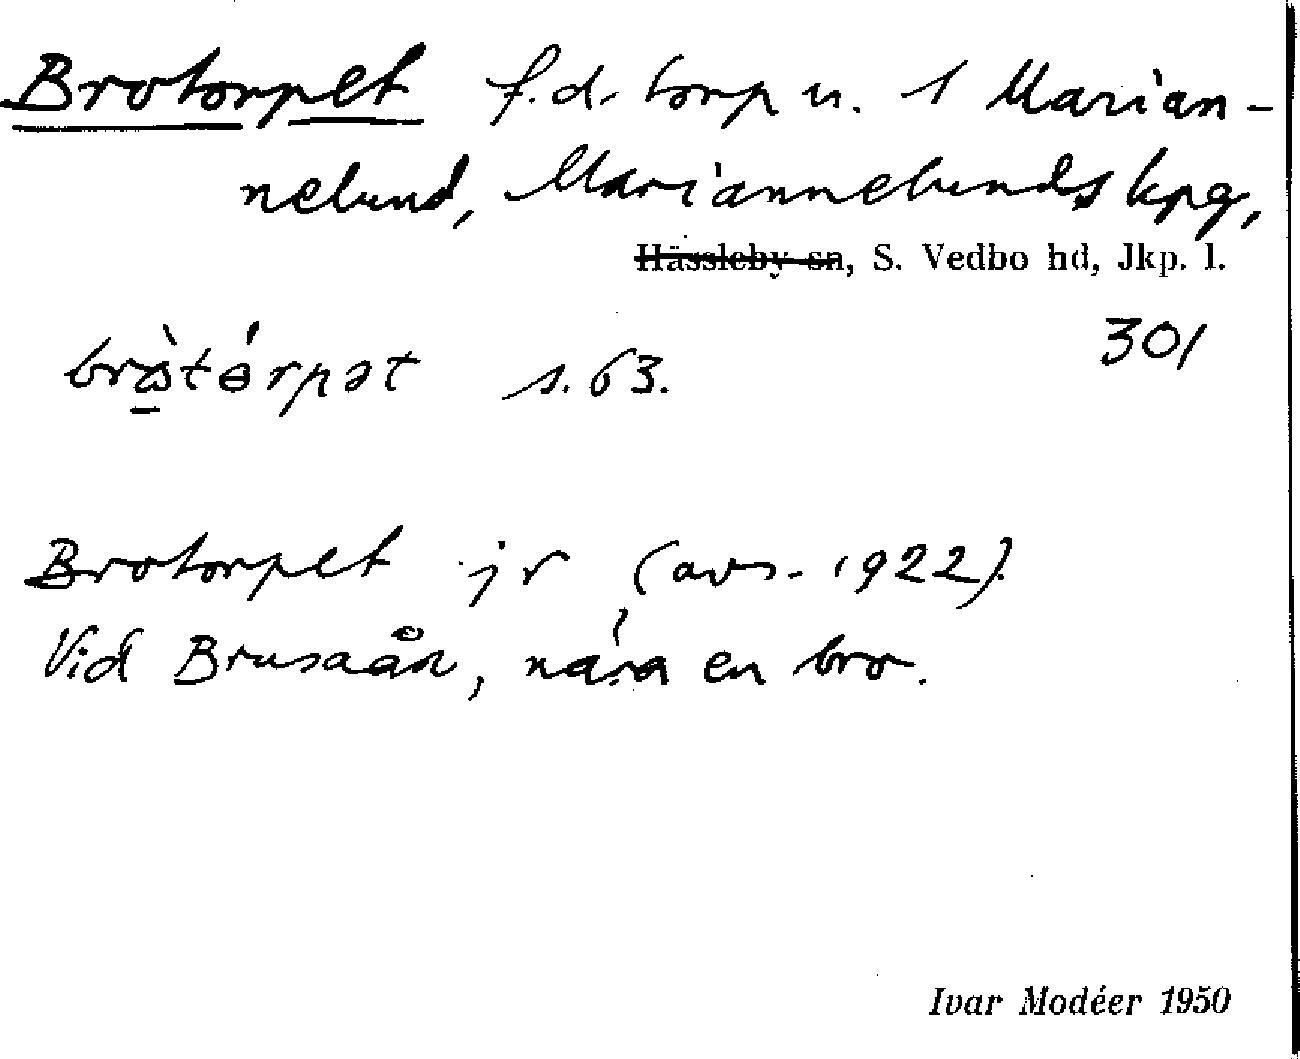 Brotorpet f.d. torp u. 1 Marian-
nelund, Mariannelunds kpg,
Hässleby sn, S. Vedbo hd, Jkp. l.
301
s. 63.
Brotorpet jr (avs. 1922).
Vid Brusaån, nära en bro.
Ivar Modéer 1950